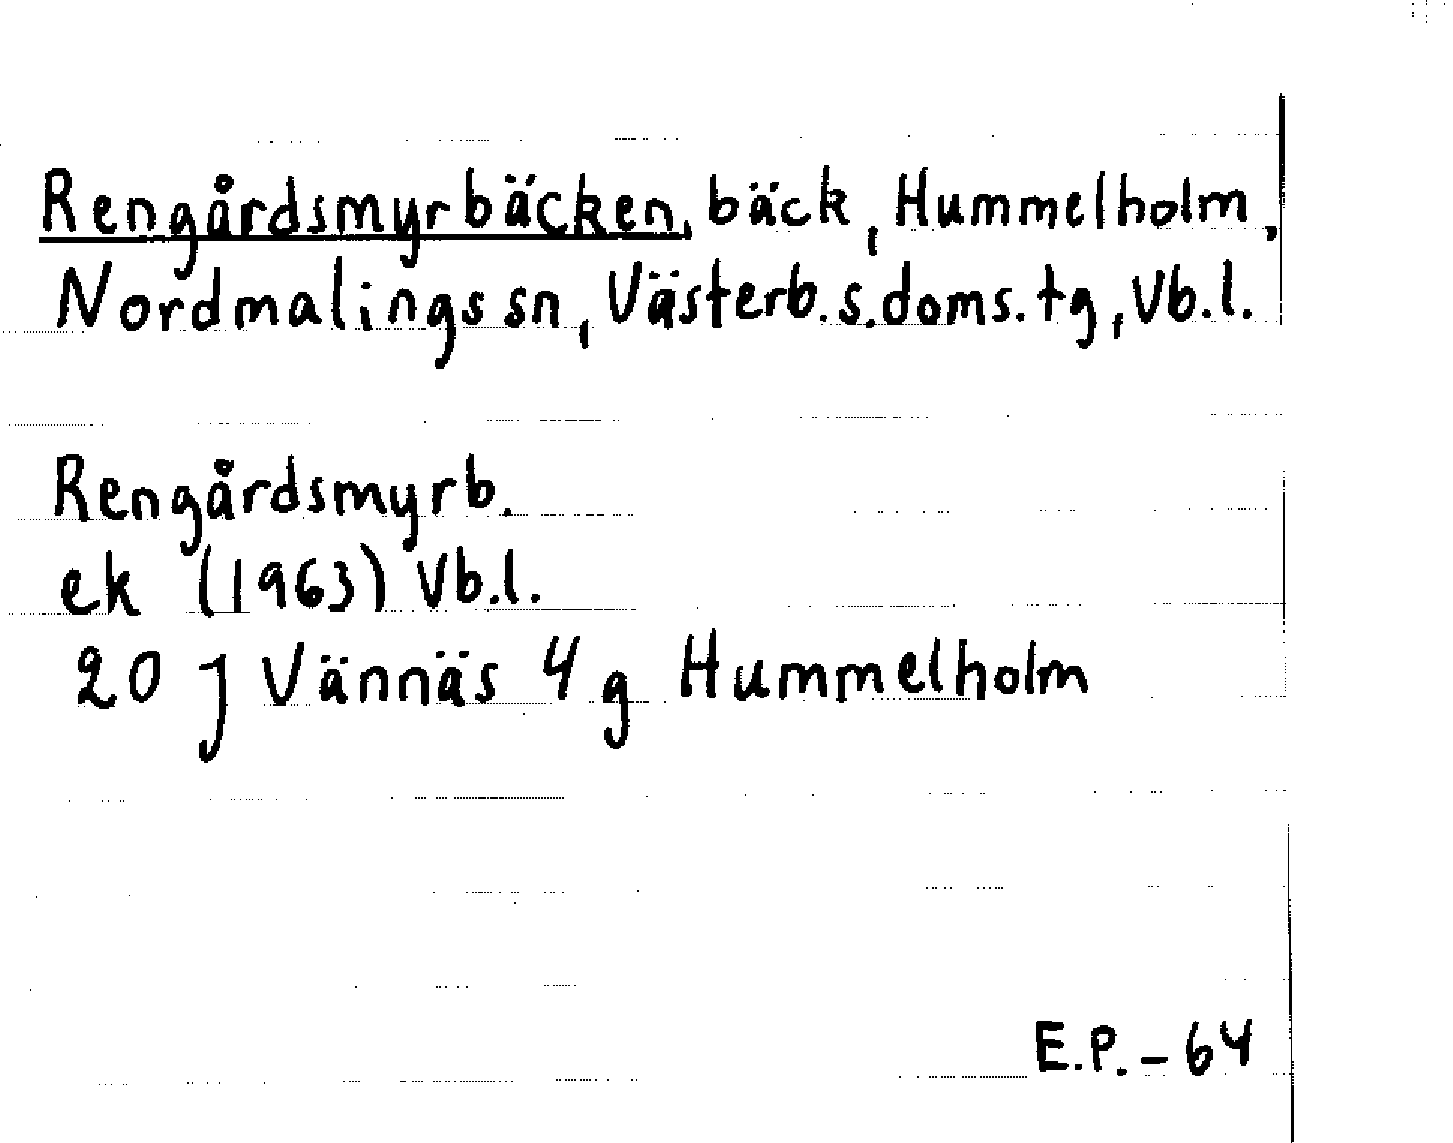 Rengårdsmyrbäcken, bäck, Hummelholm,
Nordmalings sn, Västerb. s. doms. tg, Vb.l.
Rengårdsmyrb.
ek (1963) Vb.l.
20 J Vännäs 4 g Hummelholm
E.P. - 64